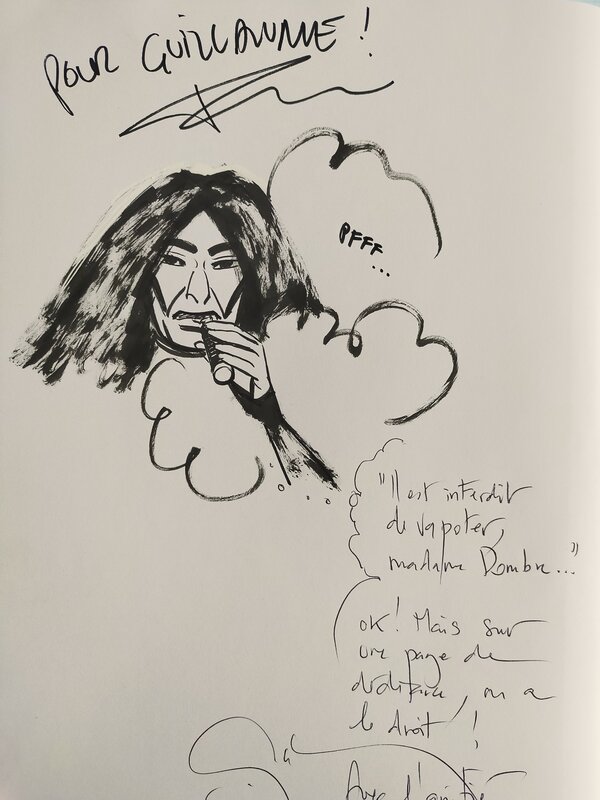 POUR GUILLAUME !
PFFF
...
"Il est interdit
de vapoter,
madame Dombre..."
OK! Mais sur
une page de
dédicace, on a
le droit !
Avec l'amitié